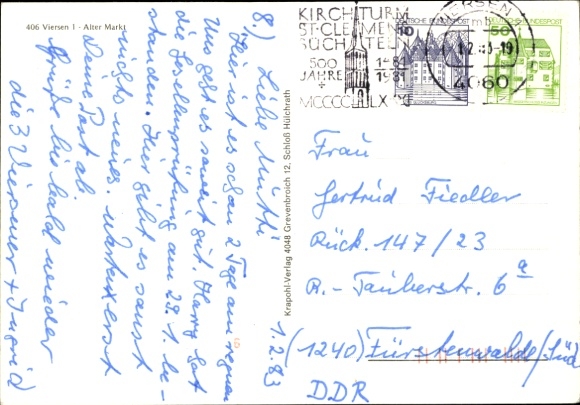 406 Viersen 1 - Alter Markt
8.) Liebe Mutti
Hier ist es schon 2 Tage am regnen
Uns geht es soweit gut. Harry hat
die Gesellenprüfung am 29.1. be-
standen. Hier gibt es sonst
nichts neues. warten erst
Deine Post ab.
Grüße bis bald wieder
die 3 Viersener + Ingrid
1.2.83
Krapohl-Verlag 4048 Grevenbroich 12, Schloß Hülchrath
KIRCHTURM
ST-CLEMENS
SÜCHTELN
500
JAHRE
1481
1981
MCCCCLXXXI
VIERSEN
mb
-19
4060
DEUTSCHE BUNDESPOST
10
DEUTSCHE BUNDESPOST
50
Frau
Gertrud Fiedler
Rück. 147/23
R.-Tauberstr. 6a
(1240) Fürstenwalde/Süd
DDR